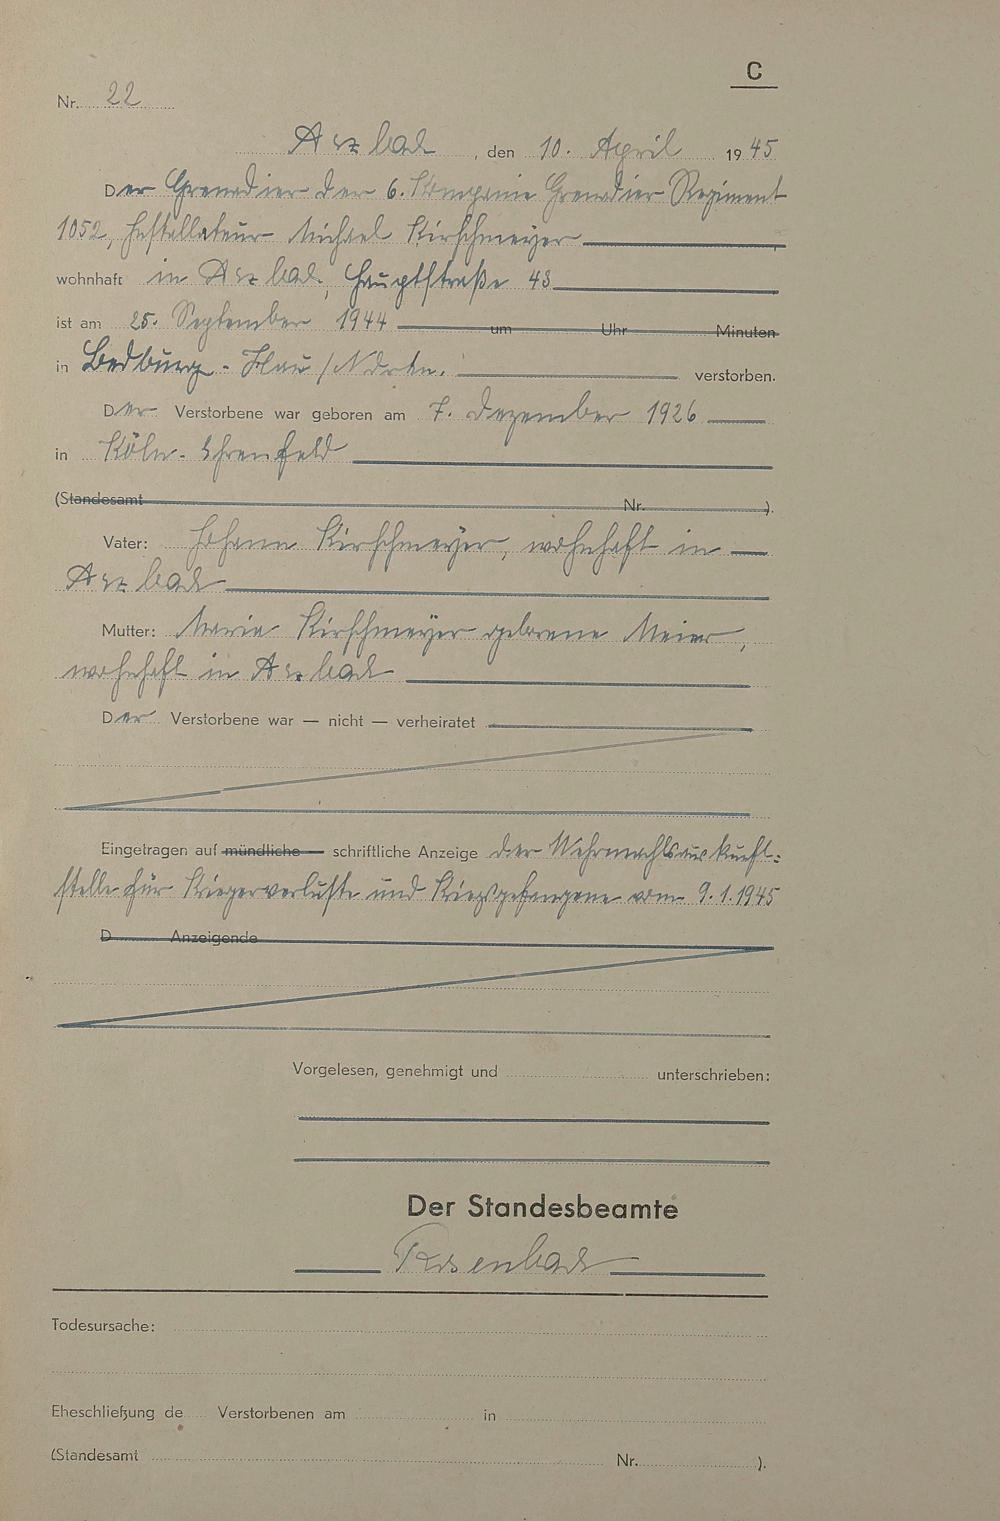 C
Nr. 22
Arzbach, den 10. April 1945
Der Grenadier der 6. Kompanie Grenadier Regiment
1052, Installateur Michael Kirschmeyer
wohnhaft in Arzbach, Hauptstraße 43
ist am 25. September 1944 um Uhr Minuten
in Bedburg-Hau / verstorben.
Der Verstorbene war geboren am 7. Dezember 1926
in Köln-Ehrenfeld
(Standesamt Nr. ).
Vater: Johann Kirschmeyer, wohnhaft in
Arzbach
Mutter: Maria Kirschmeyer geborene Meier,
wohnhaft in Arzbach
Der Verstorbene war — nicht — verheiratet
Eingetragen auf mündliche schriftliche Anzeige der Wehrmachtsauskunft=
stelle für Kriegerverluste und Kriegsgefangene vom 9.1.1945
D Anzeigende
Vorgelesen, genehmigt und unterschrieben:
Der Standesbeamte
Todesursache:
Eheschließung de Verstorbenen am in
(Standesamt Nr. ).